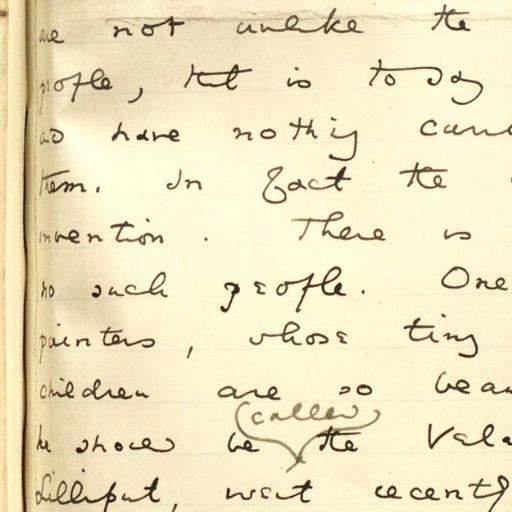 are not unlike the
people, that is to say
and have nothing
them. In fact the
invention. There is
no such people. One
painters, whose tiny
children are so beau
called
he should be the Vela
Lilliput, went recently